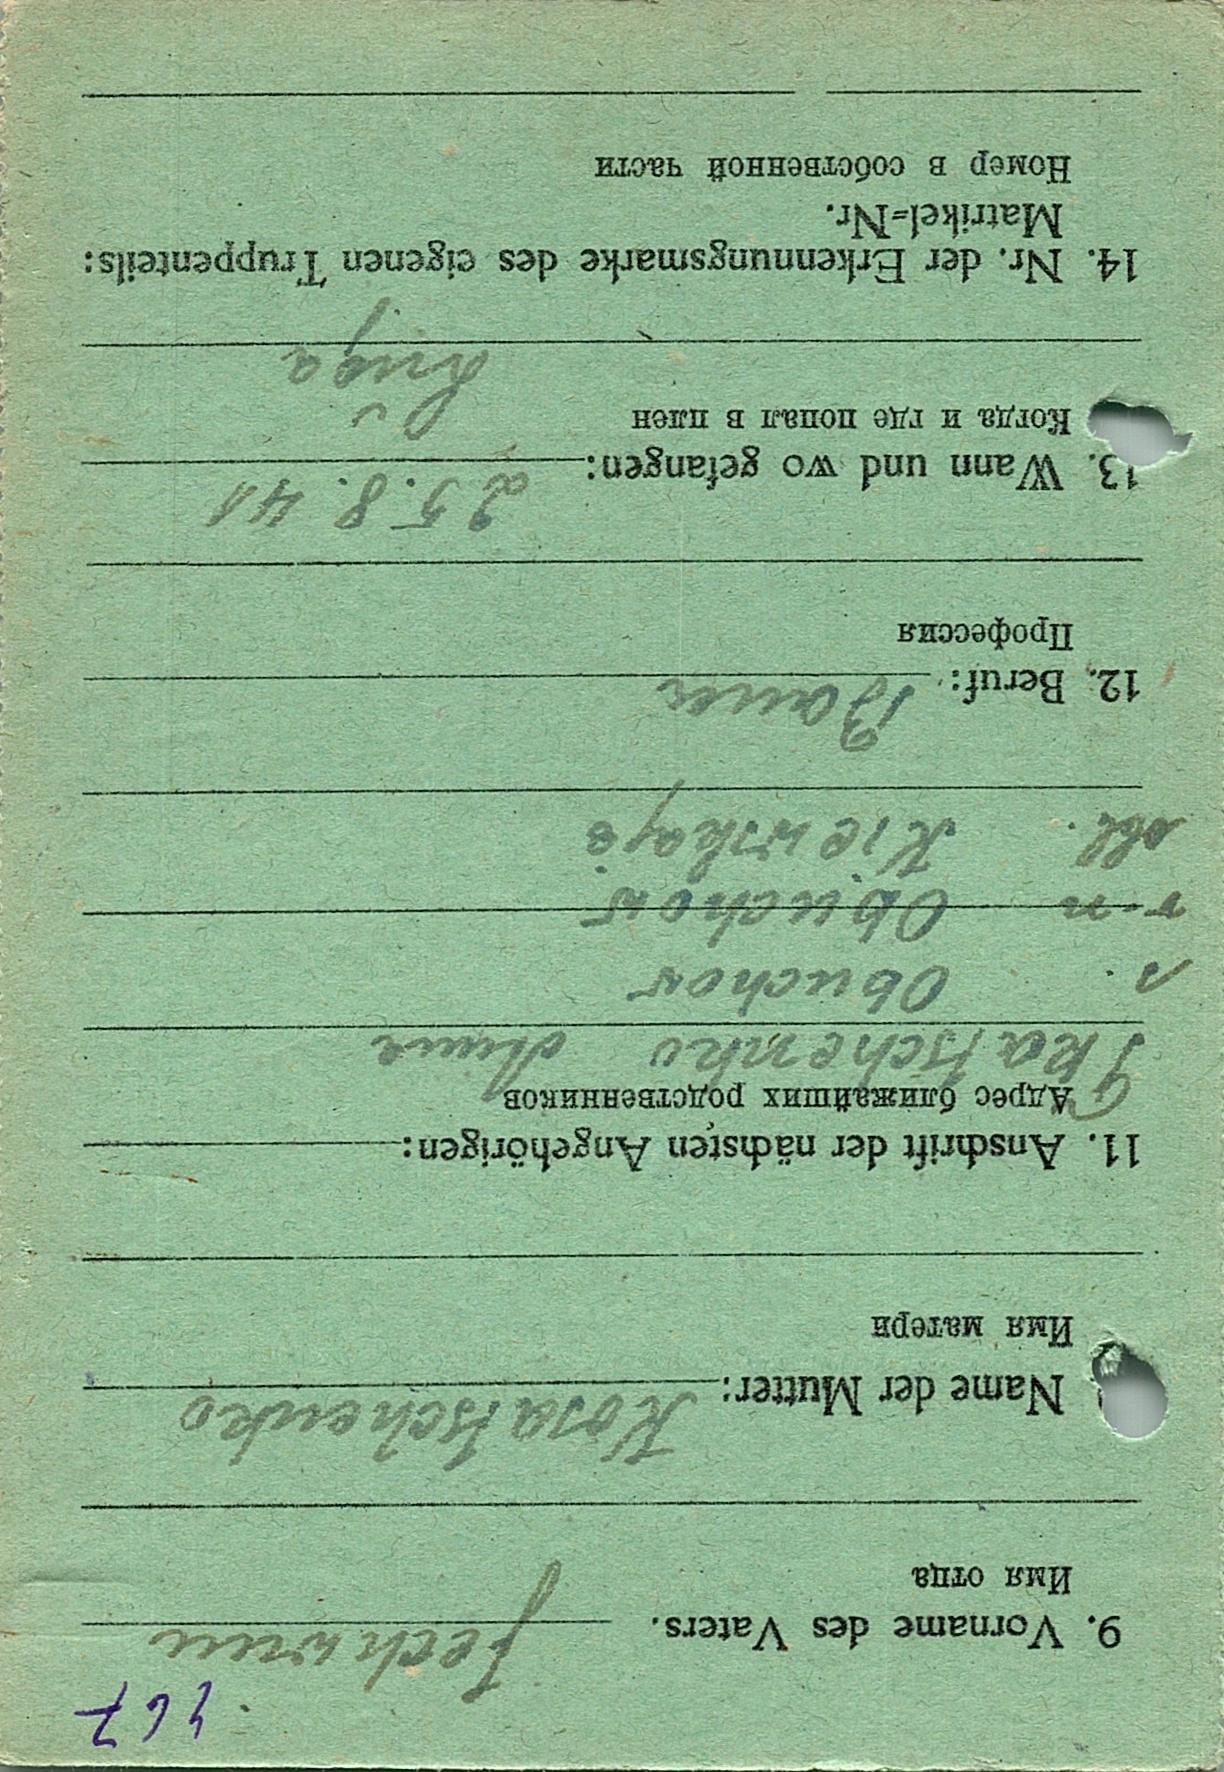 467
9. Vorname des Vaters.
Имя отца
Name der Mutter: Kosatschenko
Имя матери
11. Anschrift der nächsten Angehörigen:
Адрес ближайших родственников
Tkatschenko
s. Obuchow
r-n Obuchow
obl. Kiewskaja
12. Beruf: Bauer
Профессия
13. Wann und wo gefangen: 25.8.41
Когда и где попал в плен
14. Nr. der Erkennungsmarke des eigenen Truppenteils:
Matrikel-Nr.
Номер в собственной части